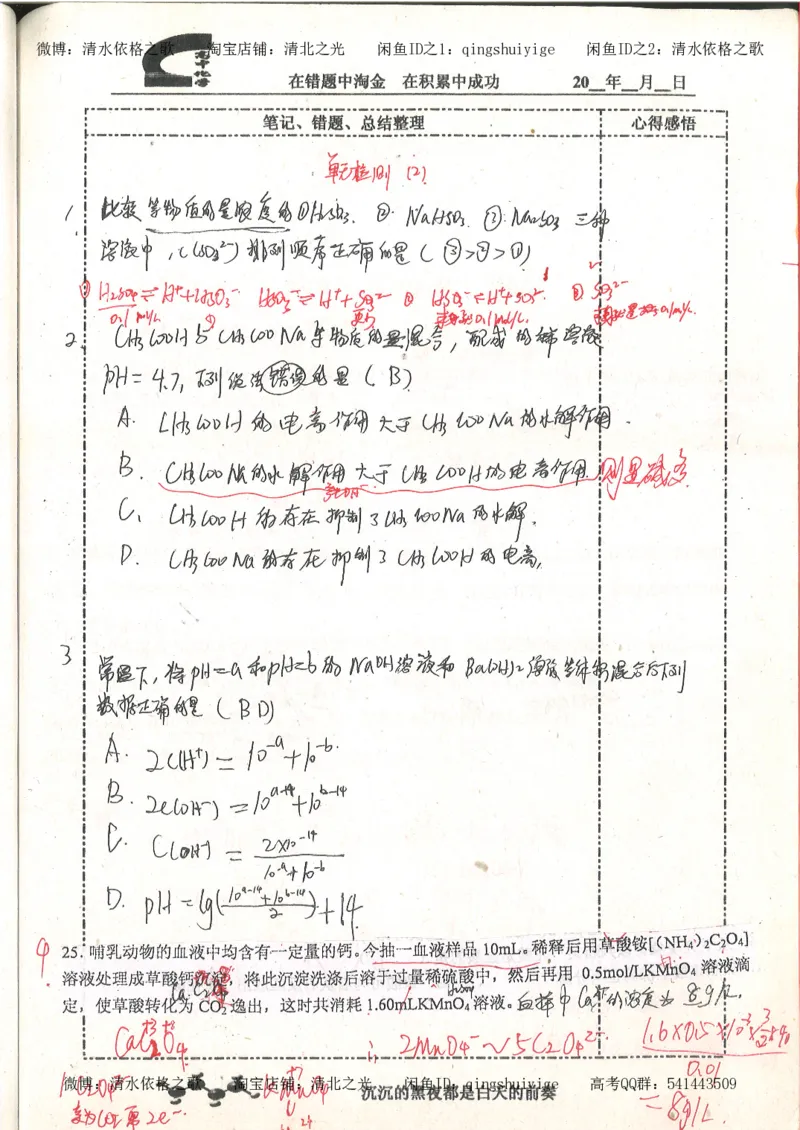 微博：清水依格之歌 淘宝店铺：清北之光 闲鱼ID之1：qingshuiyige 闲鱼ID之2：清水依格之歌
在错题中淘金 在积累中成功 20__年__月__日
笔记、错题、总结整理 心得感悟
单元检测（2）
1. 比较等物质的量浓度的①H₂SO₃. ②. NaHSO₃ ③. Na₂SO₃ 三种
溶液中，c(SO₃²⁻) 排列顺序正确的是（③>②>①）
2. CH₃COOH与CH₃COONa等物质的量混合，配成的稀溶液
pH=4.7，下列说法错误的是（B）
A. CH₃COOH的电离作用大于CH₃COONa的水解作用.
B. CH₃COONa的水解作用大于CH₃COOH的电离作用 则显碱性
C. CH₃COOH的存在抑制了CH₃COONa的水解.
D. CH₃COONa的存在抑制了CH₃COOH的电离.
3 常温下，将pH=a和pH=b的NaOH溶液和Ba(OH)₂溶液等体积混合后下列
数据正确的是（BD）
A. 2c(H⁺)=10⁻ᵃ+10⁻ᵇ.
B. 2c(OH⁻)=10ᵃ⁻¹⁴+10ᵇ⁻¹⁴
C. c(OH⁻)=2×10⁻¹⁴/(10⁻ᵃ+10⁻ᵇ)
D. pH=lg((10ᵃ⁻¹⁴+10ᵇ⁻¹⁴)/2)+14
25. 哺乳动物的血液中均含有一定量的钙。今抽一血液样品 10mL。稀释后用草酸铵[(NH₄)₂C₂O₄]
溶液处理成草酸钙沉淀，将此沉淀洗涤后溶于过量稀硫酸中，然后再用 0.5mol/LKMnO₄ 溶液滴
定，使草酸转化为 CO₂ 逸出，这时共消耗 1.60mLKMnO₄ 溶液。血样中Ca²⁺的浓度为 8g/L.
2MnO₄⁻~5C₂O₄²⁻
0.01
=8g/L.
微博：清水依格之歌 淘宝店铺：清北之光 闲鱼ID之1：qingshuiyige 高考QQ群：541443509
沉沉的黑夜都是白天的前奏